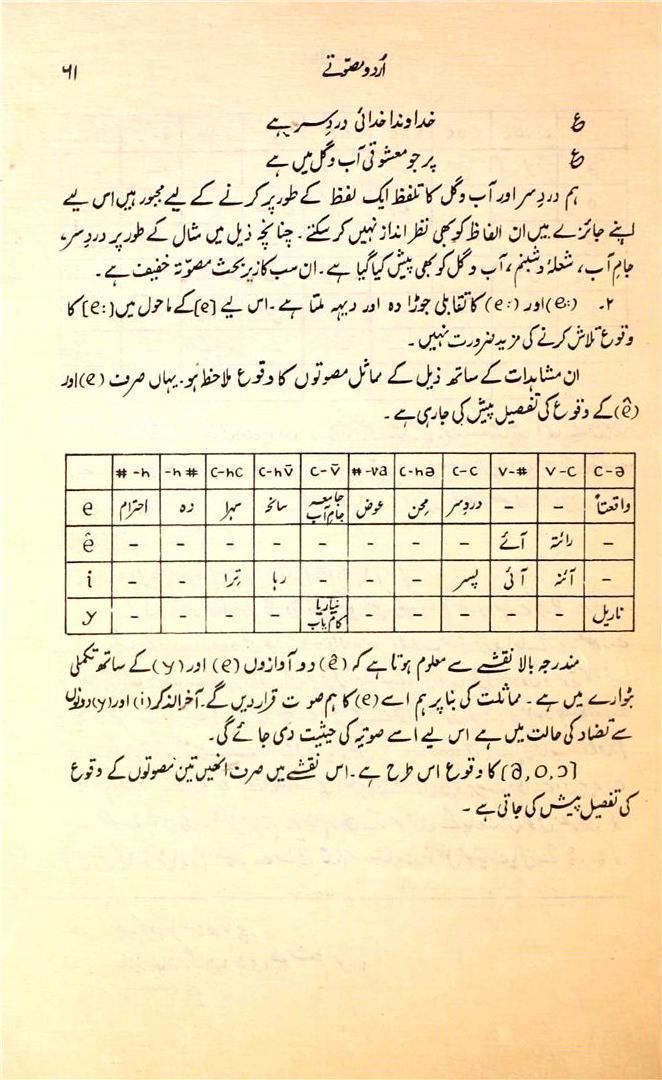 ۶۱ اُردو مصوّتے
ع خداوندا خدائی دردِسر ہے
ع پر جو معشوقی آب و گل میں ہے
ہم دردِ سر اور آب و گل کا تلفظ ایک لفظ کے طور پر کرنے کے لیے مجبور ہیں اس لیے
اپنے جائزے میں ان الفاظ کو بھی نظر انداز نہیں کر سکتے ۔ چنانچہ ذیل میں مثال کے طور پر دردِ سر،
جامِ آب ، شعلہ و شبنم ، آب و گل کو بھی پیش کیا گیا ہے ۔ ان سب کا زیرِ بحث مصوّتہ خفیف ہے ۔
۲۔ (e:) اور (e) کا تقابلی جوڑا دہ اور دیہہ ملتا ہے ۔ اس لیے [e] کے ماحول میں [e:] کا
وقوع تلاش کرنے کی مزید ضرورت نہیں ۔
ان مشاہدات کے ساتھ ذیل کے مماثل مصوتوں کا وقوع ملاحظہ ہو۔ یہاں صرف (e) اور
(ê) کے وقوع کی تفصیل پیش کی جا رہی ہے ۔
# -h -h # C-hC C-hv̄ C-v̄ #-va C-hə C-C V-# V-C C-ə
e احترام دہ سہرا سانحہ جامعہ جامِ آب عوض محن دردِسر - - واقعتاً
ê - - - - - - - - آئے رائتہ -
i - - تِرا رہا - - - پسر آئی آئنہ -
y - - - - نیاریا کام یاب - - - - - ناریل
مندرجہ بالا نقشے سے معلوم ہوتا ہے کہ (ê) دو آوازوں (e) اور (y) کے ساتھ تکملی
بٹوارے میں ہے ۔ مماثلت کی بنا پر ہم اسے (e) کا ہم صوت قرار دیں گے۔ آخر الذکر (i) اور (y) دونوں
سے تضاد کی حالت میں ہے اس لیے اسے صوتیہ کی حیثیت دی جائے گی۔
[ə,o,ɔ] کا وقوع اس طرح ہے ۔ اس نقشے میں صرف انھیں تین مصوتوں کے وقوع
کی تفصیل پیش کی جاتی ہے ۔